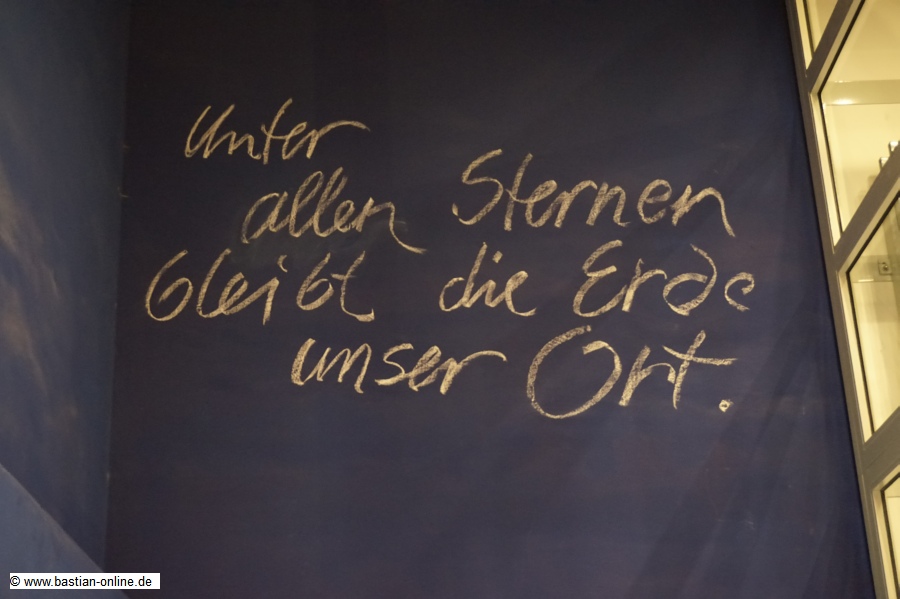 Unter
allen Sternen
bleibt die Erde
unser Ort.
© www.bastian-online.de